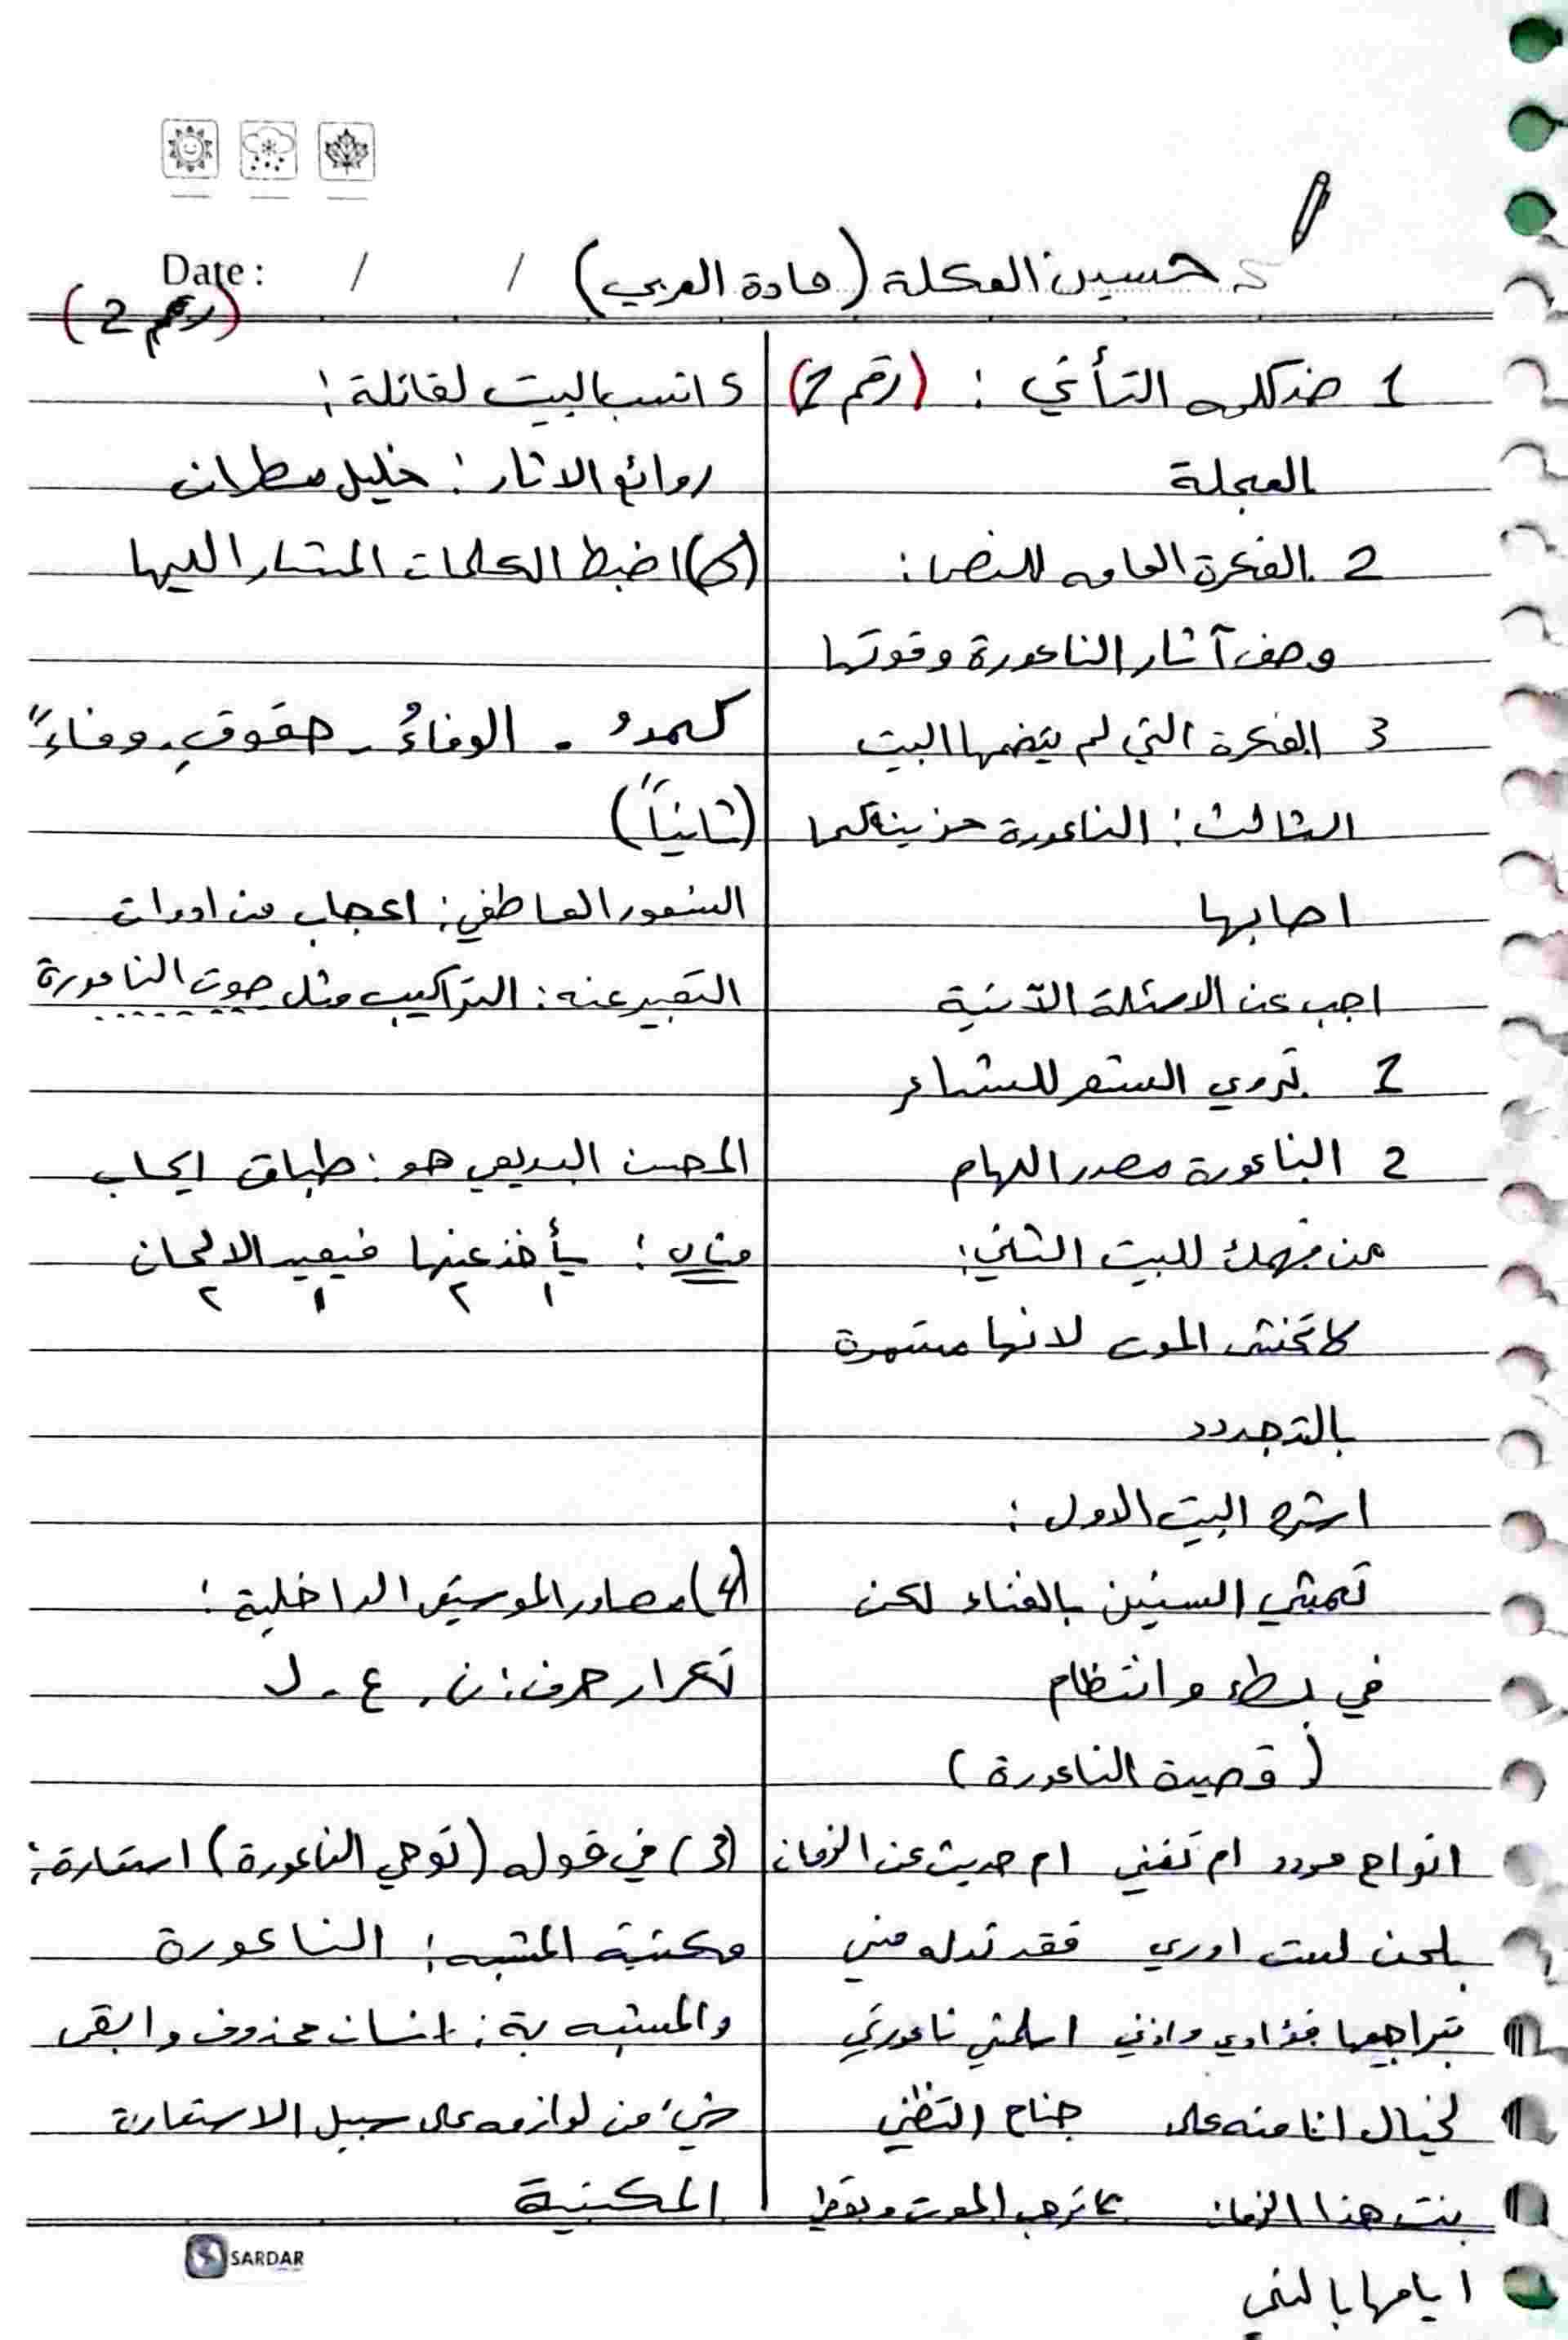 حسين العكلة (مادة العربي)
Date: / /
(رقم 2)
1 ضد كلمه التأني : (رقم 2)
العجلة
2 الفكرة العامه للنص:
وصف آثار الناعورة وقوتها
3 الفكرة التي لم يتضمنها البيت
الثالث: الناعورة حزينة لما
اصابها
اجب عن الاسئلة الآتية
1 تروي الشعر للشاعر
2 الناعورة مصدر الهام
من فهمك للبيت الثاني:
لا تخشى الموت لانها مستمرة
بالتجدد
اشرح البيت الاول:
تمشي السنين بالغناء لكن
في بطء وانتظام
(قصيدة الناعورة)
انواح مردد ام تغني ام حديث عن الزمان
بلحن لست ادري فقد تدله مني
بتراجيعها فؤادي واذني اسلمتني ناعورتي
لخيال انا منه على جناح التظني
بنت هذا الزمان لا ترهب الموت
ايامها بالتني
5 انسب البيت لقائلة:
روائع الاثار: خليل مطران
(6) اضبط الكلمات المشار اليها
الوفاءُ - حقوقِ - وفاءً
(ثانياً)
الشعور العاطفي: اعجاب من ادوات
التعبير عنه: التراكيب مثل صوت الناعورة
المحسن البديعي هو: طباق ايجاب
مثال: يأخذ عنها فيعيد الالحان
١ ٢ ١ ٢
(4) مصادر الموسيقى الداخلية:
تكرار حرف: ن. ع. ل
(3) في قوله (توحي الناعورة) استعارة:
مكنية المشبه: الناعورة
والمشبه بة: انسان محذوف وابقى
شيء من لوازمه على سبيل الاستعارة
المكنية
SARDAR